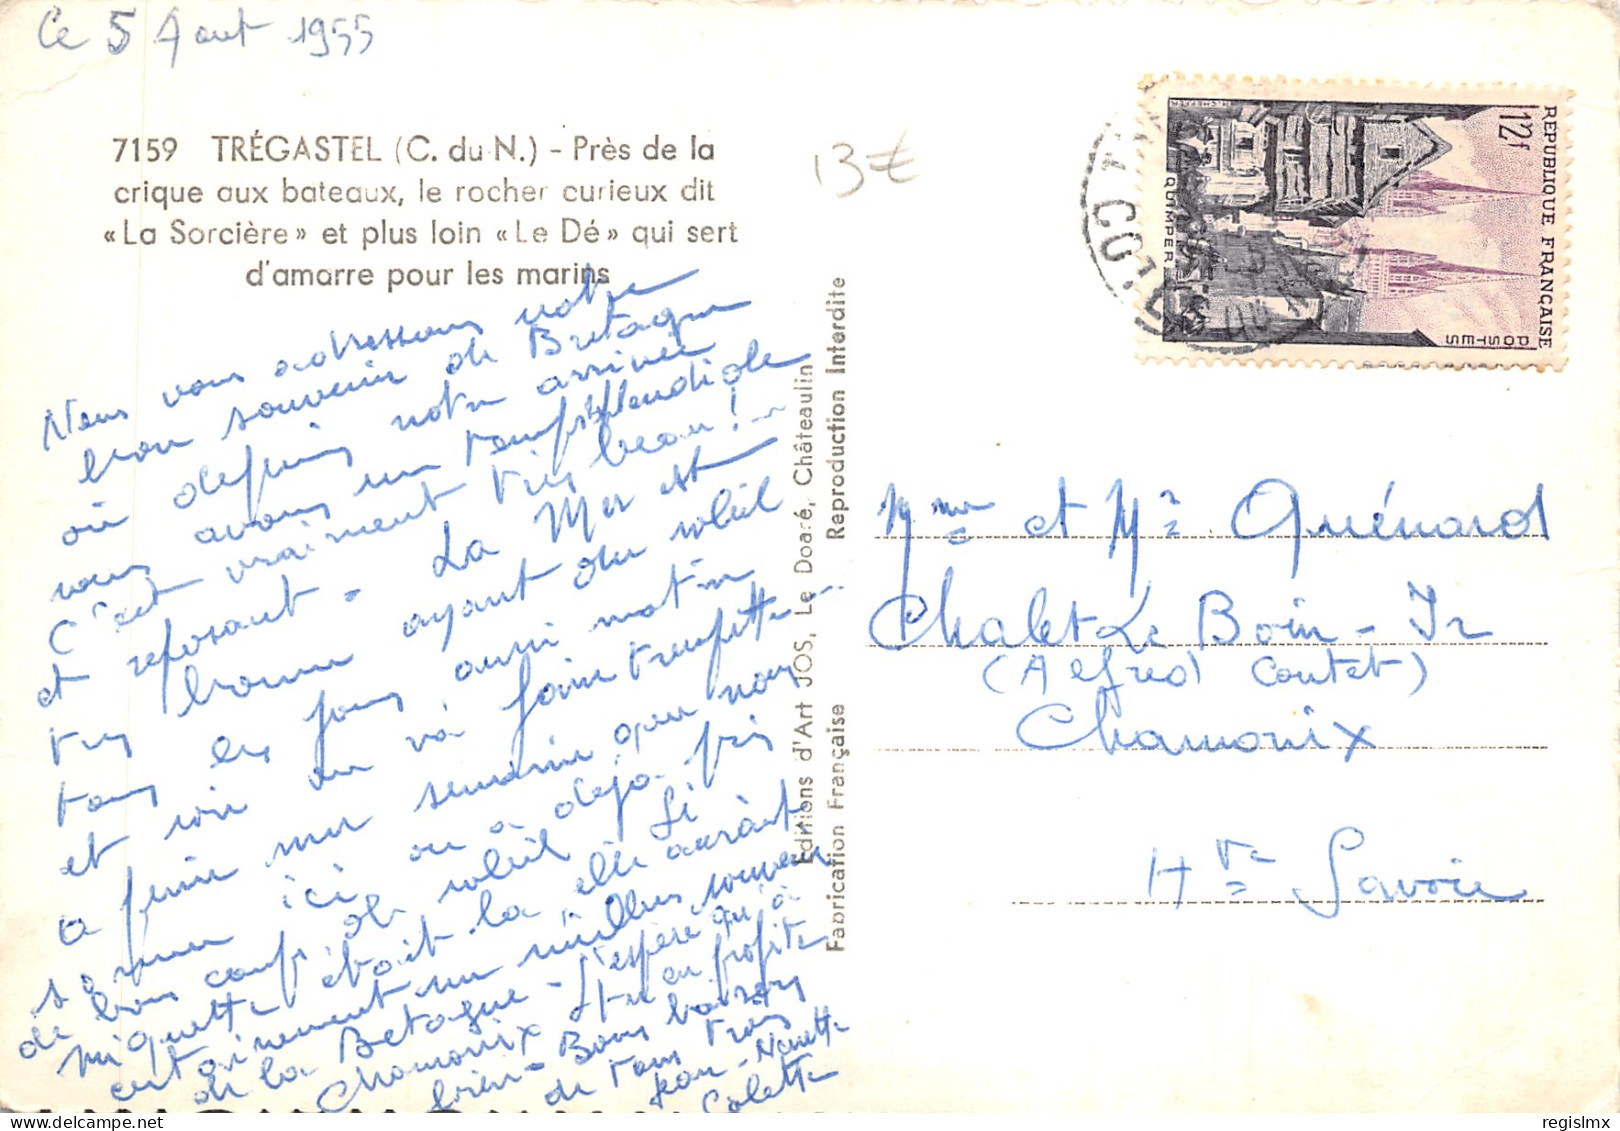 Ce 5 Aout 1955
7159 TRÉGASTEL (C. du N.) - Près de la
crique aux bateaux, le rocher curieux dit
« La Sorcière » et plus loin « Le Dé » qui sert
d'amarre pour les marins
13€
Nous vous adressons notre
bon souvenir de Bretagne
où depuis notre arrivée
nous avons un temps splendide
C'est vraiment très beau !
et reposant - La Mer est
très bonne ayant du soleil
tous les jours aussi matin
et soir on va faire trempette...
a peine une semaine que nous
sommes ici on a déjà pris
de bons coups de soleil Si
Miquette était là elle aurait
certainement un meilleur souvenir
de la Betagne - J'espère qu'à
Chamonix tu en profite
bien - Bons baisers
de tous trois
Jean - Nanette
Colette
Editions d'Art JOS, Le Doaré, Châteaulin
Fabrication Française Reproduction Interdite
REPUBLIQUE FRANÇAISE
12f
POSTES
QUIMPER
Mme et Mr Quénard
Chalet Le Boin - Jr
(Alfred Contet)
Chamonix
Hte Savoie
regislmx